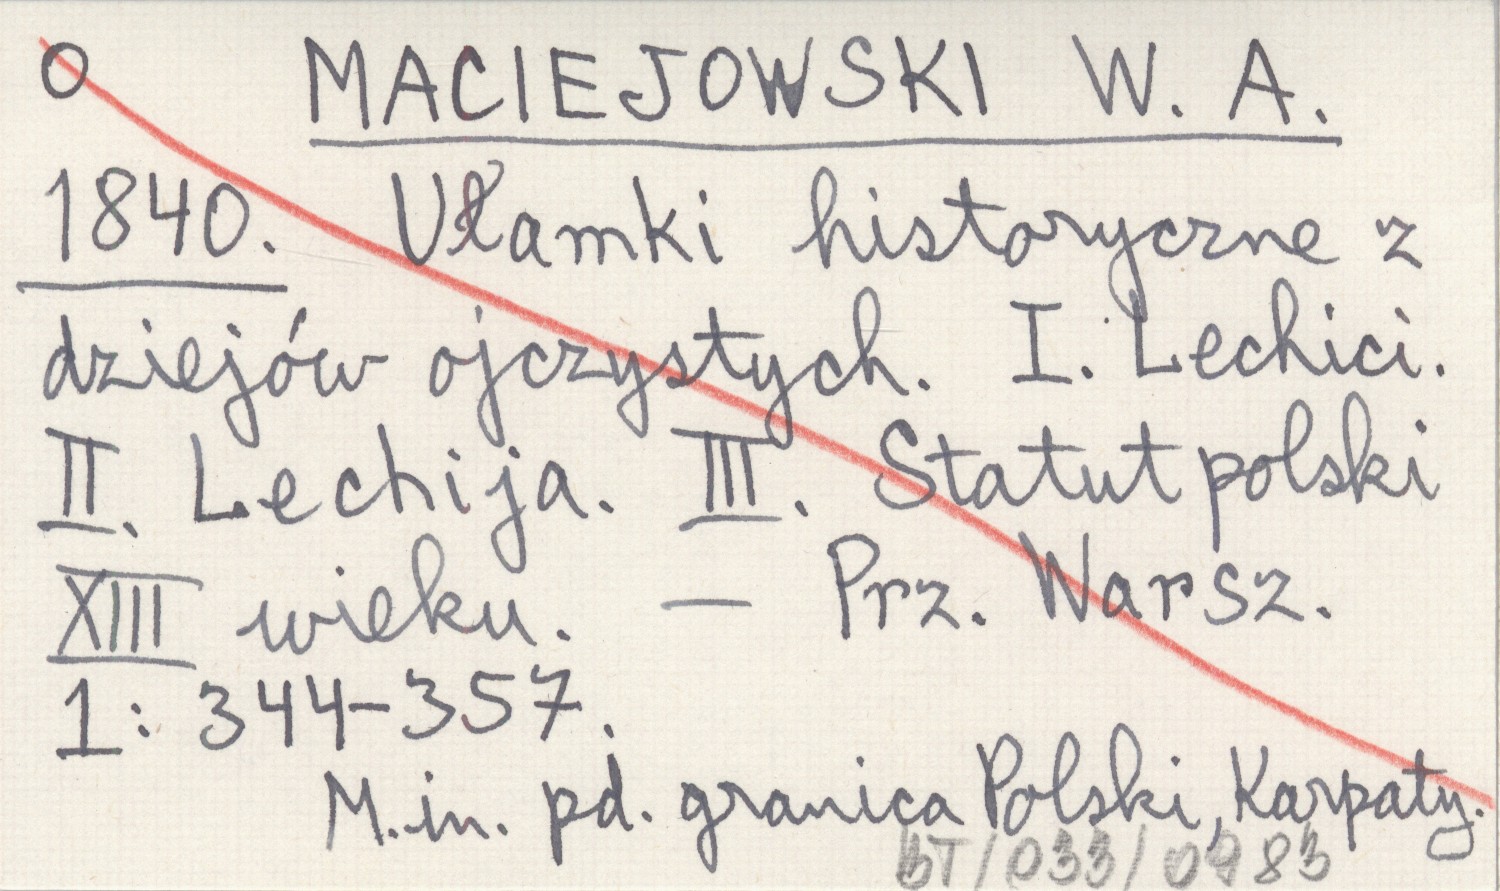 O MACIEJOWSKI W. A.
1840. Ułamki historyczne z
dziejów ojczystych. I. Lechici.
II. Lechija. III. Statut polski
XIII wieku. — Prz. Warsz.
1: 344-357.
M.in. pd. granica Polski, Karpaty.
BT/033/0983